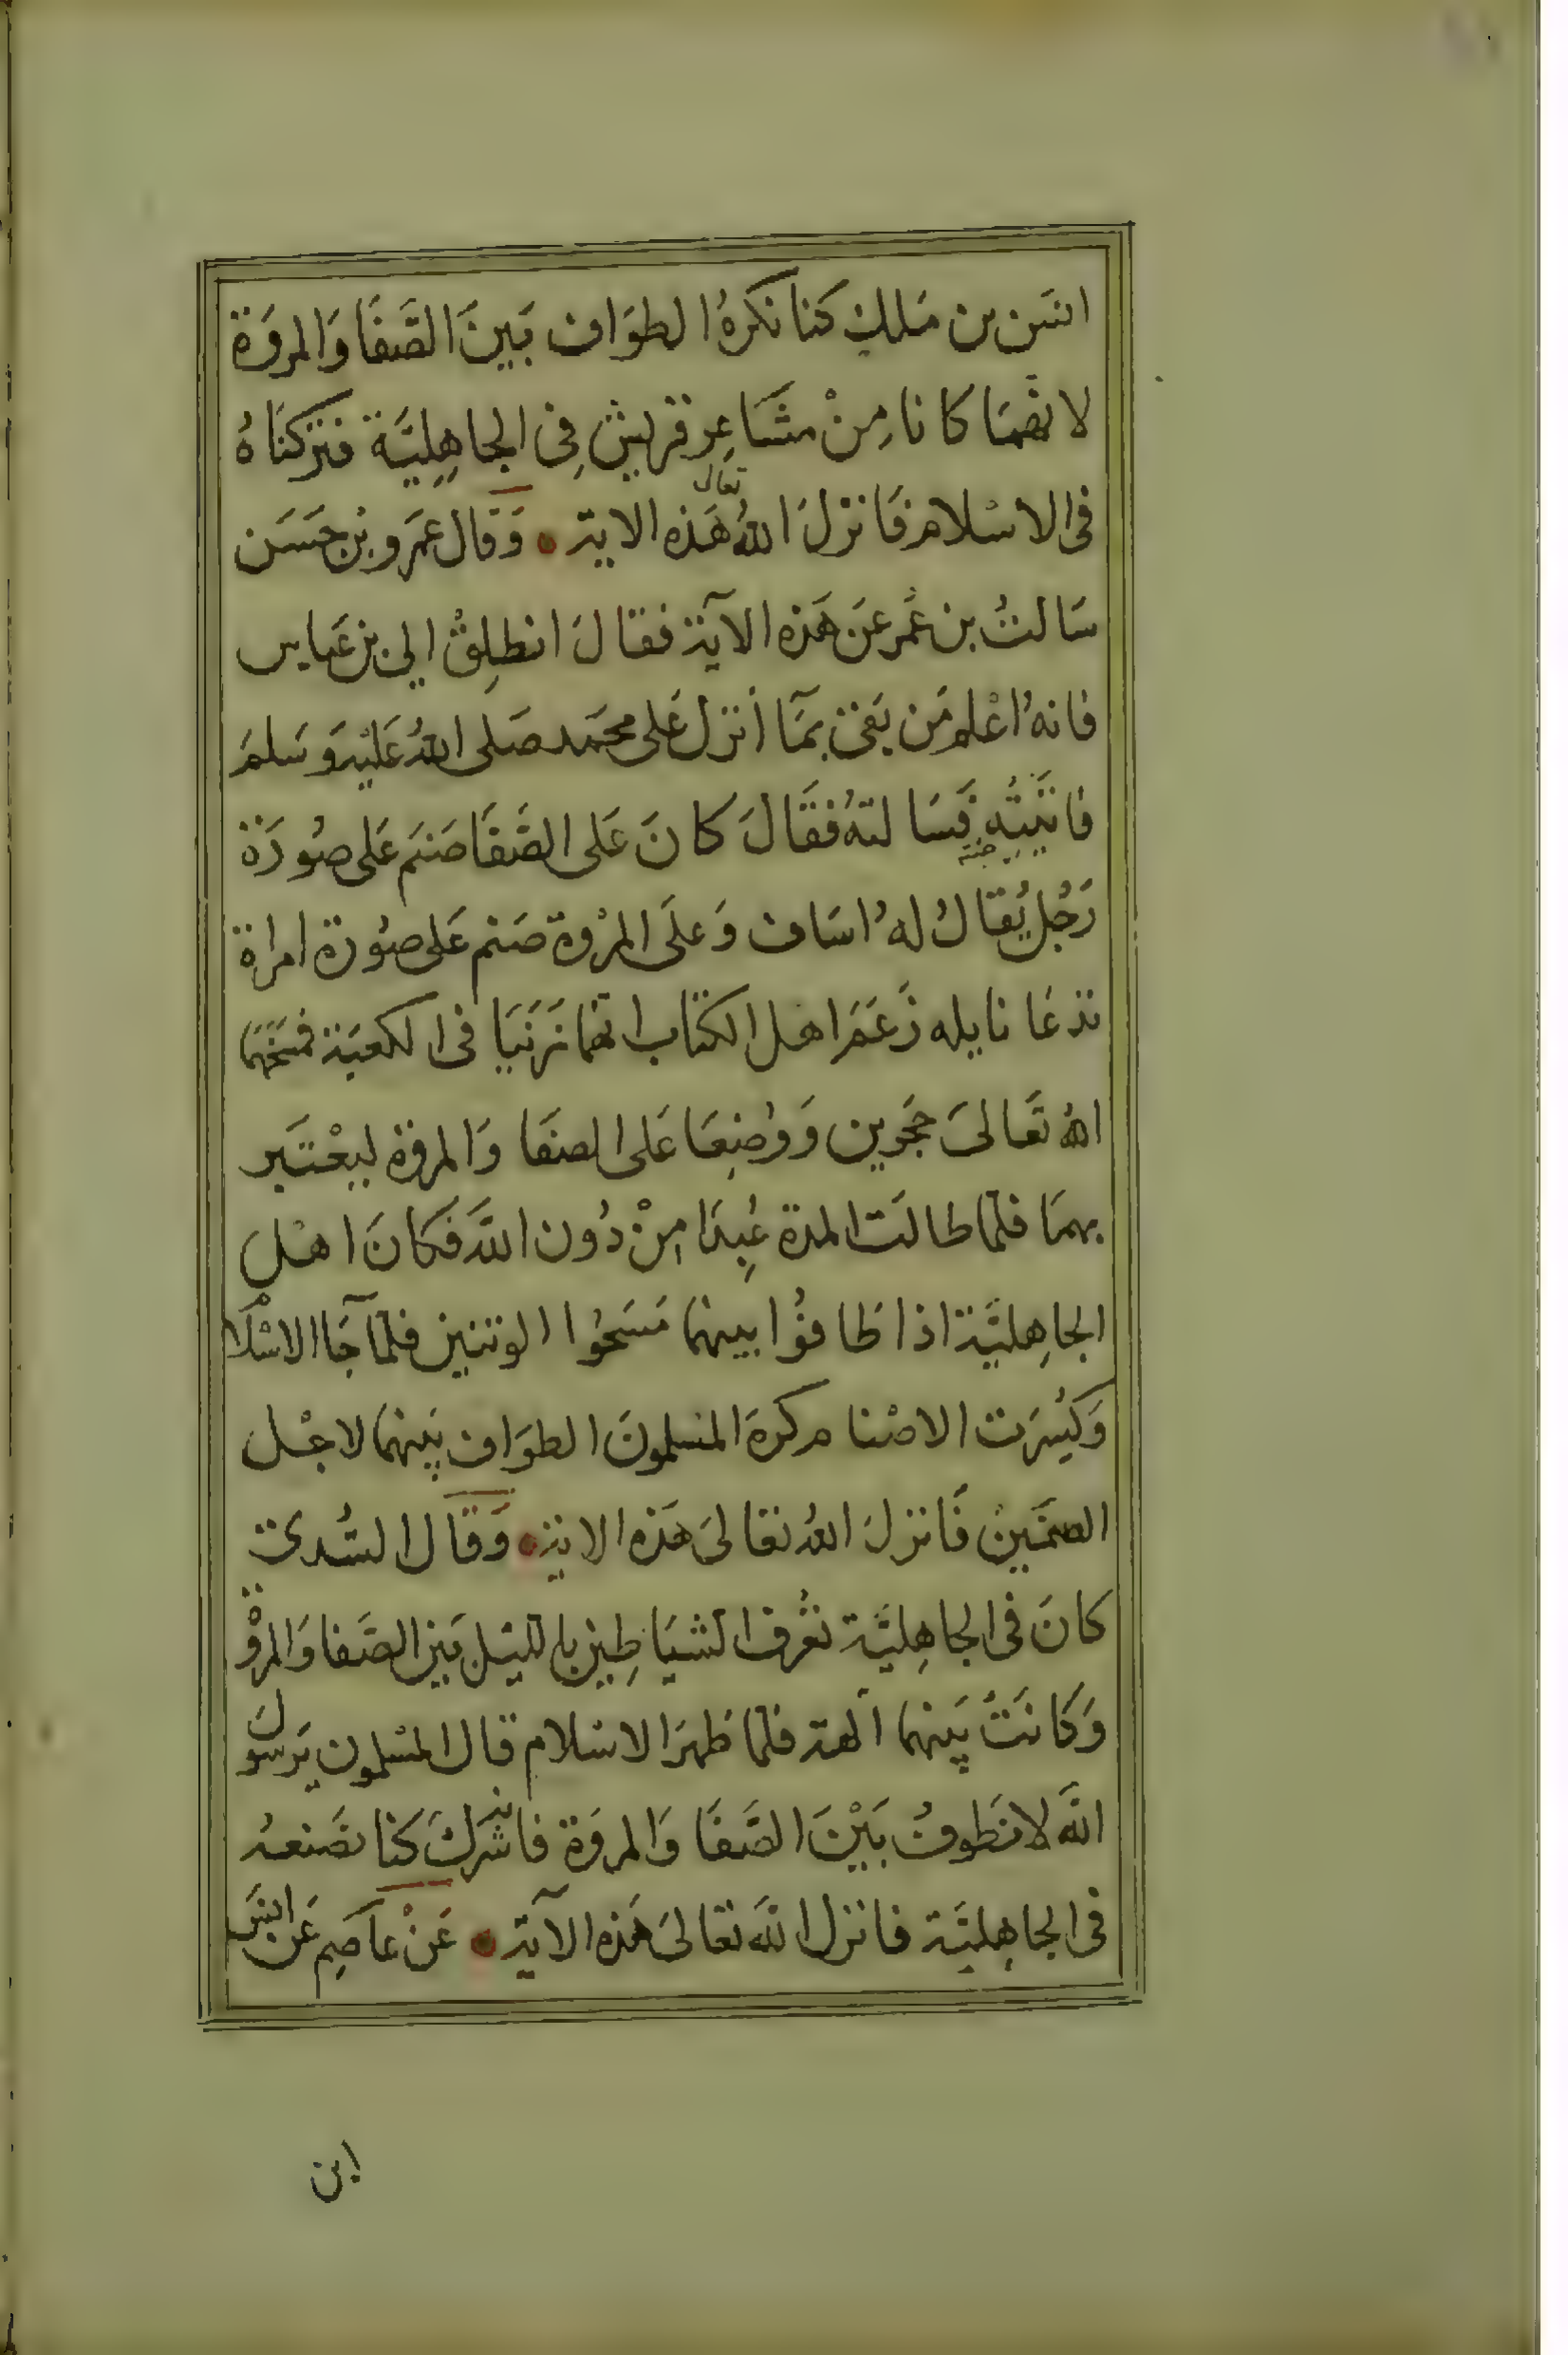 انس بن ملك كنا نكره الطواف بين الصفا والمروة
لانهما كانا من مشاعر قريش في الجاهلية فتركناه
في الاسلام فانزل الله تعالى هذه الاية وقال عمرو بن حسن
سالت بن عمر عن هذه الآية فقال انطلق الى بن عباس
فانه اعلم من بقى بما أنزل على محمد صلى الله عليه وسلم
فاتيته فسالته فقال كان على الصفا صنم على صورة
رجل يقال له اساف وعلى المروة صنم على صورة امراة
تدعا نايله زعم اهل الكتاب انهما زنيا في الكعبة فمسخهما
الله تعالى حجرين ووضعا على الصفا والمروة ليعتبر
بهما فلما طالت المدة عبدا من دون الله فكان اهل
الجاهلية اذا طافوا بينهما مسحوا الوثنين فلما جا الاسلا
وكسرت الاصنام كره المسلمون الطواف بينهما لاجل
الصنمين فانزل الله تعالى هذه الاية وقال السدي
كان في الجاهلية تعرف الشياطين بالليل بين الصفا والمروة
وكانت بينهما آلهة فلما ظهر الاسلام قال المسلمون يرسول
الله لا نطوف بين الصفا والمروة فانه شرك كنا نصنعه
في الجاهلية فانزل الله تعالى هذه الآية عن عاصم عن انس
ابن